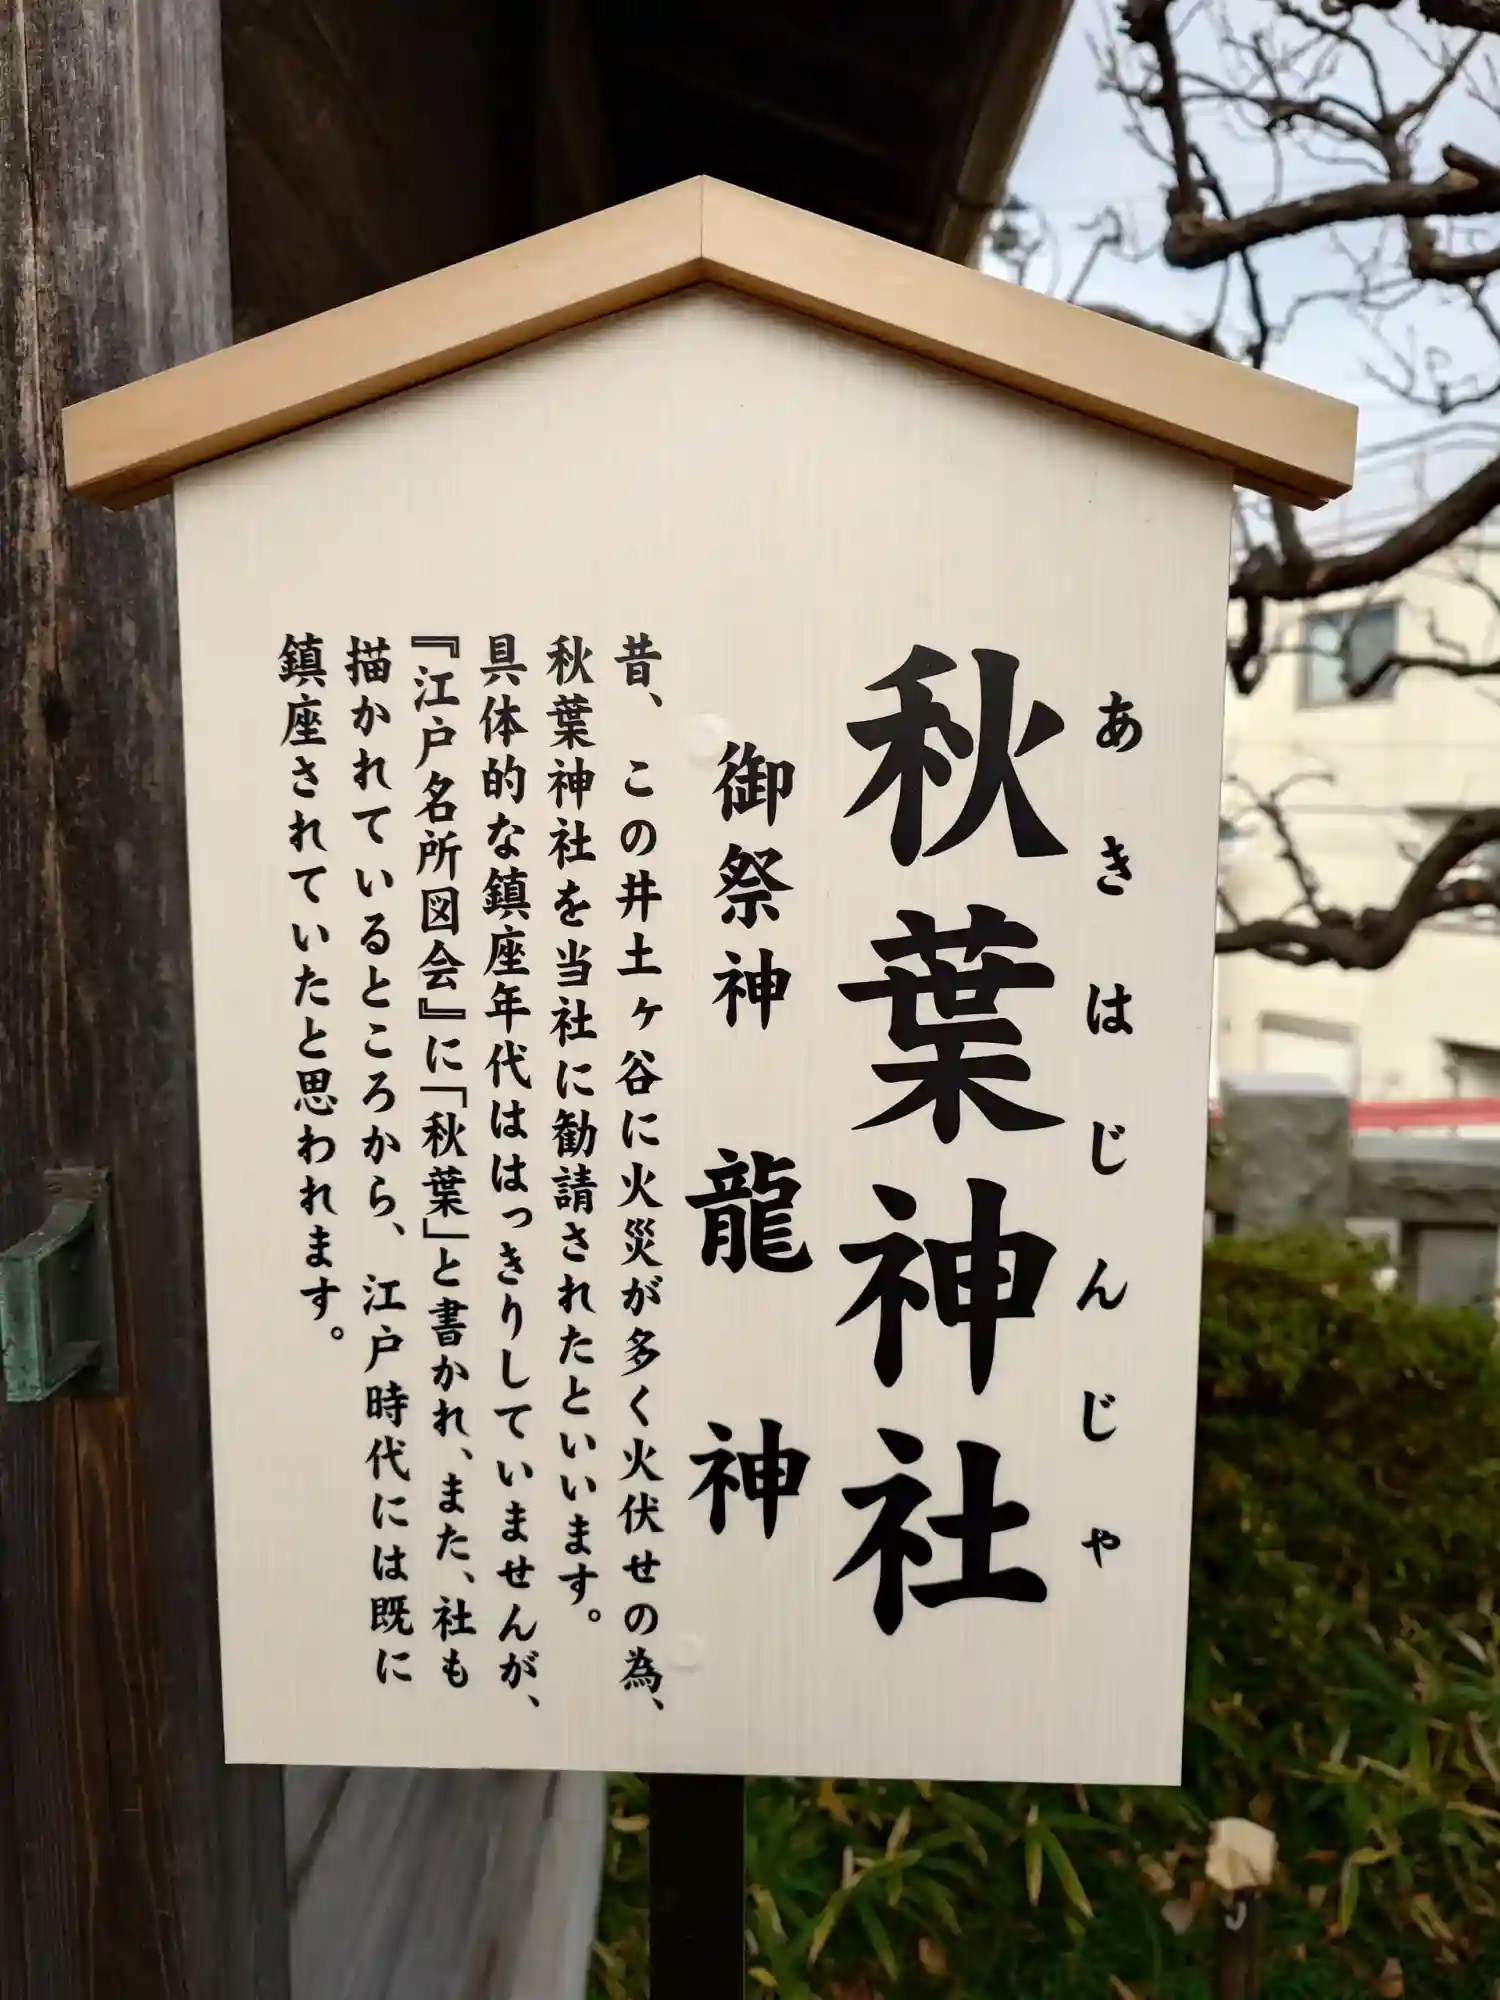 あきはじんじゃ
秋葉神社
御祭神 龍神
昔、この井土ヶ谷に火災が多く火伏せの為、
秋葉神社を当社に勧請されたといいます。
具体的な鎮座年代ははっきりしていませんが、
『江戸名所図会』に「秋葉」と書かれ、また、社も
描かれているところから、江戸時代には既に
鎮座されていたと思われます。